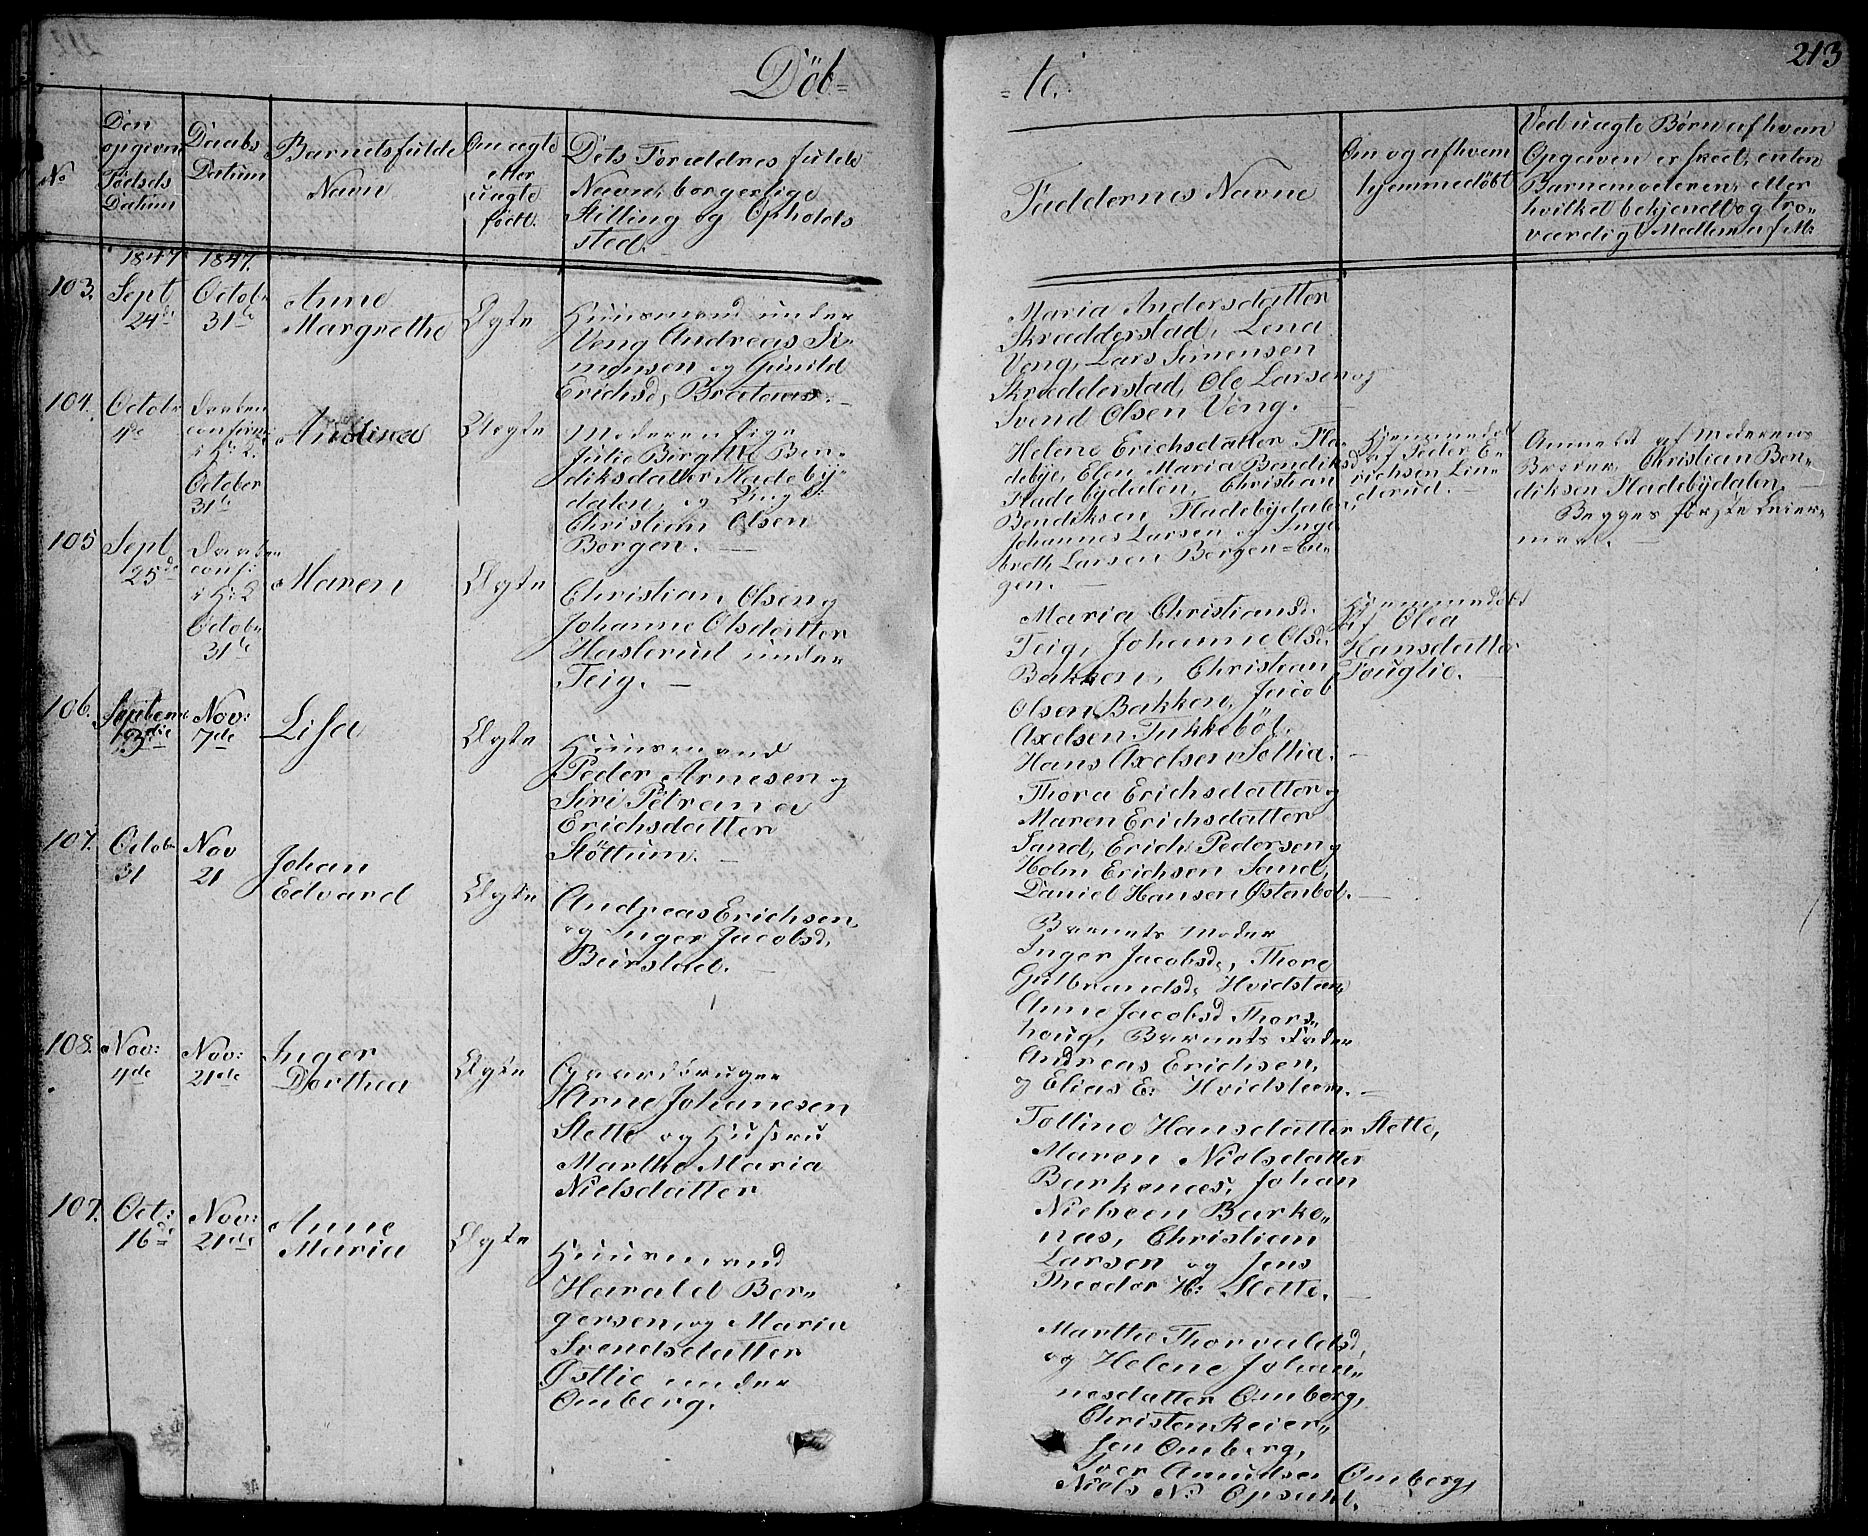 Döb=
=te.
213
No
Den
opgivne
Födsels
Datum
Daabs
Datum
Barnets fulde
Navn
Om ægte
eller
uægte
födt.
Dets Forældres fulde
Navn, borgerlige
Stilling og Opholds
sted.
Faddernes Navne
Om og af hvem
hjemmedöbt
Ved uægte Børn af hvem
Opgiven er skeet, enten
Barnemoderen, eller
hvilket bekjendt og tro-
værdigt Medlem af M:
1847 1847.
103.
Sept
24de
Octob
31te
Anne
Margrethe
Ægte
Huusmand under
Veng Andreas Si-
monsen og Gunild
Erichsd, Brataas.
Maria Andersdatter
Skrædderstad, Lena
Veng, Lars Simensen
Skrædderstad, Ole Larsen og
Svend Olsen Veng.
104.
Octobr
4de
Daaben
confirm:
i H: K.
October
31te
Andrina
Uægte
Moderen Pige
Julie Birgitte Ben-
diksdatter Fladeby-
dalen, og Ungk:
Christian Olsen
Borgen.
Helene Erichsdatter Fla-
debye, Elen Maria Bendiksd
Fladebydalen, Christian
Bendiksen Fladebydalen,
Johannes Larsen og Inge
breth Larsen Borgen=En-
gen.
Hjemmedöbt
af Peder E-
richsen Lin-
derud.
Anmeldt af Moderens
Broder, Christian Ben-
diksen Fladebydalen.
Begges første Leier-
maal.
105
Sept
25de
Daaben
conf:
i H: K
Octobr
31te
Maren
Ægte
Christian Olsen og
Johanne Olsdatter
Haslerud under
Teig.
Maria Christiansd.
Teig, Johanne Olsd.
Bakken, Christian
Olsen Bakken, Jacob
Axelsen Tukkeböl,
Hans Axelsen Sollia.
Hjemmedöbt
af Olea
Hansdatter
Fouglie.
106.
Septemb
13die
Nov:
7de
Lisa
Ægte
Huusmand
Peder Arnesen og
Siri Petrana
Erichsdatter
Slöttum.
Thora Erichsdatter og
Maren Erichsdatter
Sand, Erich Pedersen og
Holm Erichsen Sand,
Daniel Hansen Østenbøl.
107.
Octobr
31
Nov
21
Johan
Edvard
Ægte
Andreas Erichsen,
og Inger Jacobsd,
Burstad.
Barnets Moder
Inger Jacobsd, Thore
Gulbrandsd, Hvidsteen,
Anne Jacobsd Thors-
houg, Barnets Fader
Andreas Erichsen,
og Elias E: Hvidsteen.
108.
Nov:
4de
Nov:
21de
Inger
Dorthea
Ægte
Gaardbruger
Arne Johanesen
Slette og Hustru
Marthe Maria
Nielsdatter
Tolline Hansdatter Slette,
Maren Nielsdatter
Barkenæs, Johan
Nielsen Barke-
næs, Christian
Larsen og Jens
Theodor H: Slette.
109.
Oct:
16de
Nov:
21de
Anne
Maria
Ægte
Huusmand
Harald Ber-
gersen og Maria
Svendsdatter
Østlie under
Omberg.
Marthe Thorvaldsd,
og Helene Johan-
nesdatter Omberg,
Christen Reier-
sen Omberg,
Iver Amundsen Omberg,
Niels N: Opsund.